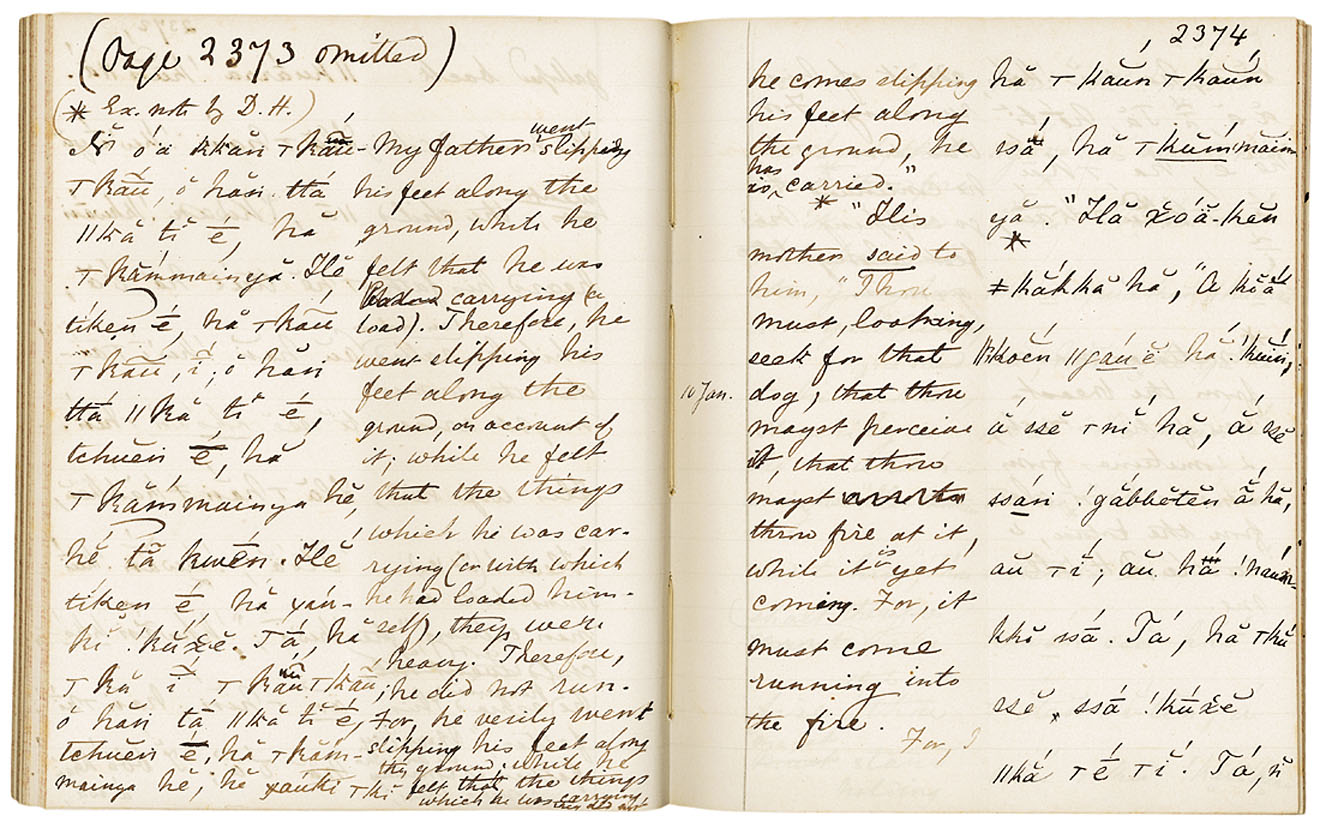 (Page 2373 omitted)
(* Ex. note by D. H.)
N̆ óä kkăn ⊤kăū-
⊤kăū, ŏ hăn ttá
ǁkă tĭ é, hă
⊤kăḿmainyă. Hĕ
tíken é, hă ⊤kăū
⊤kăū, ĭ; ŏ hăn
ttá ǁkă tĭ é,
tchuĕn é, hă
⊤kăḿmainya hĕ,
hĕ tă kwĕn. Hĕ
tíken é, hă χáu-
kĭ !kŭχĕ. Tá, hă
⊤kŭ ĭ ⊤kăū⊤kăū;
ŏ hăn tá ǁkă tĭ é,
tchuĕn é, hă ⊤kăm-
mainya hĕ, hĕ χáukĭ ⊤kĭ
My father went slipping
his feet along the
ground, while he
felt that he was
carrying (a
load). Therefore, he
went slipping his
feet along the
ground, on account of
it; while he felt
that the things
which he was car-
rying (or with which
he had loaded him-
self), they were
heavy. Therefore,
he did not run.
For, he verily went
slipping his feet along
the ground; while he
felt that the things
which he was carrying
2374
10 Jan.
he comes slipping
his feet along
the ground, he
has carried."
* "His
mother said to
him, "Thou
must, looking,
seek for that
dog, that thou
mayst perceive
it, that thou
mayst
throw fire at it,
while it is yet
coming. For, it
must come
running into
the fire.
For, I
hă ⊤kăun⊤kăun
ssă, hă ⊤kŭḿmain
yă. "Hă χóă-kĕn
*
ǂkákka hă, "A kŏă
ǁkoĕn ǁgáuĕ hă !kŭiń,
á ssĕ ⊤nĭ hă, á ssĕ
ssáń !găbbĕtĕn ă hă,
au ⊤ĭ; au hă !háun-
khĭ ssá. Tá, hă ⊤kŭ
ssĕ ssá !kúχĕ
ǁkă ⊤é ⊤ĭ. Tá, ṅ